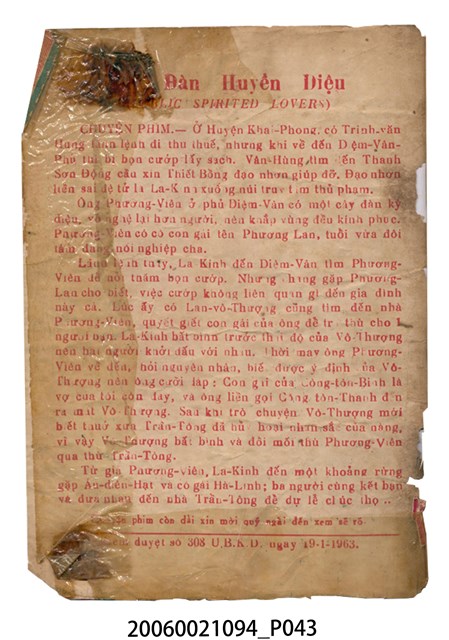 Đàn Huyền Diệu
SPIRITED LOVERS)
CHUYỆN PHIM.— Ở Huyện Khai-Phong, có Trịnh-văn
Hùng lãnh lệnh đi thu thuế, nhưng khi về đến Diệm-Vân-
Phủ thì bị bọn cướp lấy sạch. Văn-Hùng tìm đến Thanh
Sơn Động cầu xin Thiết Bồng đạo nhơn giúp đỡ. Đạo nhơn
liền sai đệ tử là La-Kinh xuống núi truy tìm thủ phạm.
Ông Phương-Viên ở phủ Diệm-Vân có một cây đàn kỳ
diệu, võ nghệ lại hơn người, nên khắp vùng đều kính phục.
Phương-Viên có cô con gái tên Phương Lan, tuổi vừa đôi
tám đang nối nghiệp cha.
Lãnh lệnh thầy, La Kinh đến Diệm-Vân tìm Phương-
Viên để nối thăm bọn cướp. Nhưng chàng gặp Phương-
Lan cho biết, việc cướp không liên quan gì đến gia đình
này cả. Lúc ấy có Lan-võ-Thượng cũng tìm đến nhà
Phương-Viên, quyết giết con gái của ông để trả thù cho
người bạn. La-Kinh bất bình trước thái độ của Võ Thượng
nên hai người khởi đấu với nhau. Thời may ông Phương-
Viên về đến, hỏi nguyên nhân, biết được ý định của Võ-
Thượng nên ông cười đáp: Con gái của Công-tôn-Bình là
vợ của tôi còn đây, và ông liền gọi Công tôn-Thanh đến
ra mắt Võ-Thượng. Sau khi trò chuyện Võ-Thượng mới
biết thuở xưa Trần-Tông đã hủ hoại nhan sắc của nàng,
vì vậy Võ-Thượng bất bình và đổi mối thù Phương-Viên
qua thù Trần-Tông.
Từ giã Phương-viên, La-Kinh đến một khoảng rừng
gặp Âu-điền-Hạt và cô gái Hà-Linh; ba người cùng kết bạn
và đưa nhau đến nhà Trần-Tông để dự lễ chúc thọ...
phim còn dài xin mời quý ngài đến xem sẽ rõ
duyệt số 308 U.B.K.D. ngày 19-1-1963.
20060021094_P043